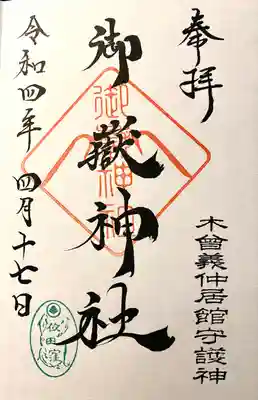 奉拝
木曾義仲居館守護神
御嶽神社
御嶽神社
令和四年 四月十七日